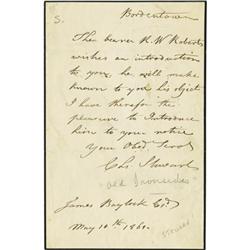 S.
Bordentown
The bearer R. W. Roberts
wishes an introduction
to you, he will make
known to you his object
I have therefor the
pleasure to Introduce
him to your notice
Your Obed Servt
Chs Stewart
"Old Ironsides"
James Esqr
May 10th 1860.